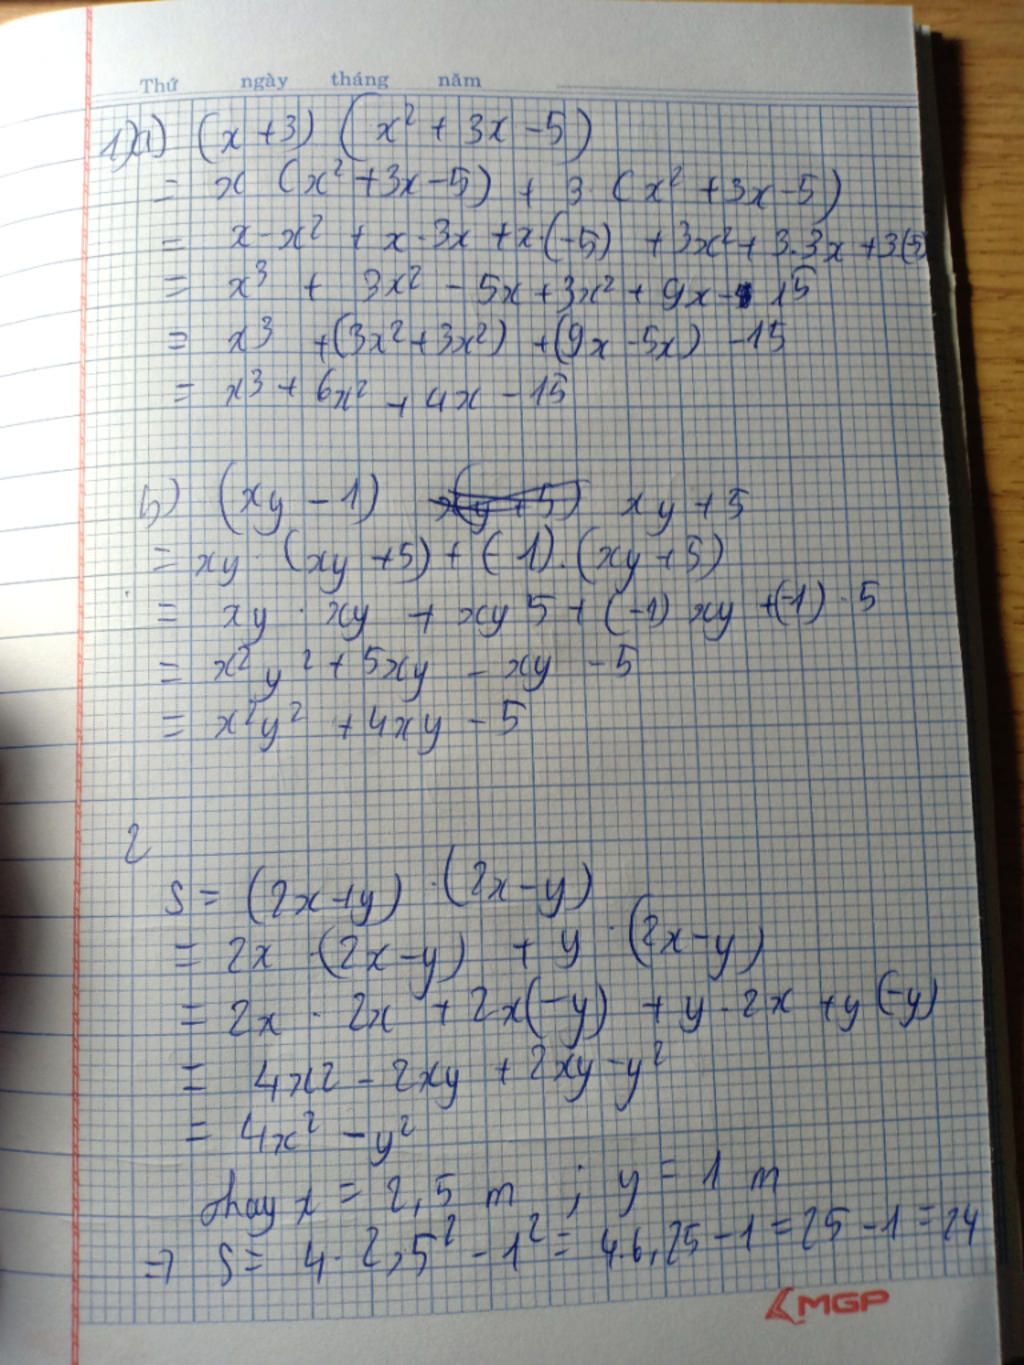 Thứ ngày tháng năm
1)a) (x + 3) (x² + 3x - 5)
= x (x² + 3x - 5) + 3 (x² + 3x - 5)
= x · x² + x · 3x + x · (-5) + 3x² + 3 · 3x + 3(5)
= x³ + 3x² - 5x + 3x² + 9x - 15
= x³ + (3x² + 3x²) + (9x - 5x) - 15
= x³ + 6x² + 4x - 15
b) (xy - 1) xy + 5
= xy · (xy + 5) + (-1) . (xy + 5)
= xy · xy + xy 5 + (-1) xy + (-1) · 5
= x²y² + 5xy - xy - 5
= x²y² + 4xy - 5
2
S = (2x + y) · (2x - y)
= 2x · (2x - y) + y · (2x - y)
= 2x · 2x + 2x(-y) + y · 2x + y (-y)
= 4x2 - 2xy + 2xy - y²
= 4x² - y²
thay x = 2,5 m ; y = 1 m
=> S = 4 · 2,5² - 1² = 4.6,25 - 1 = 25 - 1 = 24
MGP